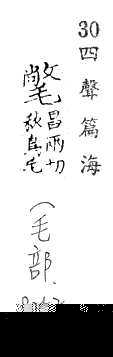 30
四聲篇海
氅
昌兩切
毛
（毛部.